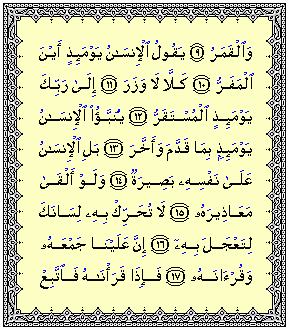 وَٱلْقَمَرُ ٩ يَقُولُ ٱلْإِنسَـٰنُ يَوْمَئِذٍ أَيْنَ
ٱلْمَفَرُّ ١٠ كَلَّا لَا وَزَرَ ١١ إِلَىٰ رَبِّكَ
يَوْمَئِذٍ ٱلْمُسْتَقَرُّ ١٢ يُنَبَّؤُا۟ ٱلْإِنسَـٰنُ
يَوْمَئِذٍۭ بِمَا قَدَّمَ وَأَخَّرَ ١٣ بَلِ ٱلْإِنسَـٰنُ
عَلَىٰ نَفْسِهِۦ بَصِيرَةٌ ١٤ وَلَوْ أَلْقَىٰ
مَعَاذِيرَهُۥ ١٥ لَا تُحَرِّكْ بِهِۦ لِسَانَكَ
لِتَعْجَلَ بِهِۦٓ ١٦ إِنَّ عَلَيْنَا جَمْعَهُۥ
وَقُرْءَانَهُۥ ١٧ فَإِذَا قَرَأْنَـٰهُ فَٱتَّبِعْ